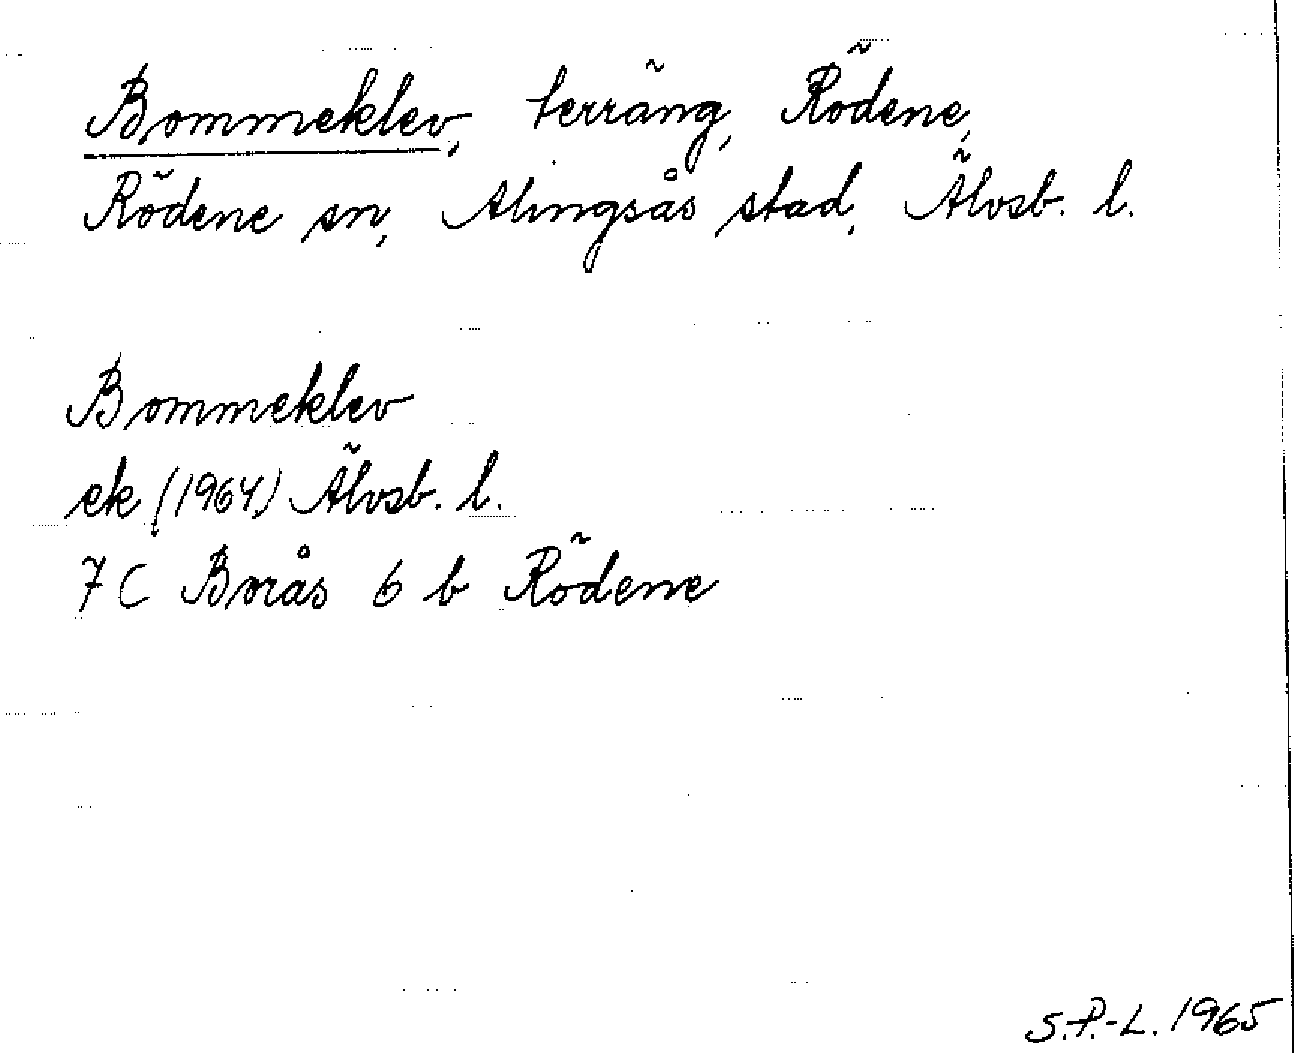 Bommeklev, terräng, Rödene,
Rödene sn, Alingsås stad, Älvsb. l.
Bommeklev
ek (1964) Älvsb. l.
7C Borås 6 b Rödene
S.P.-L. 1965